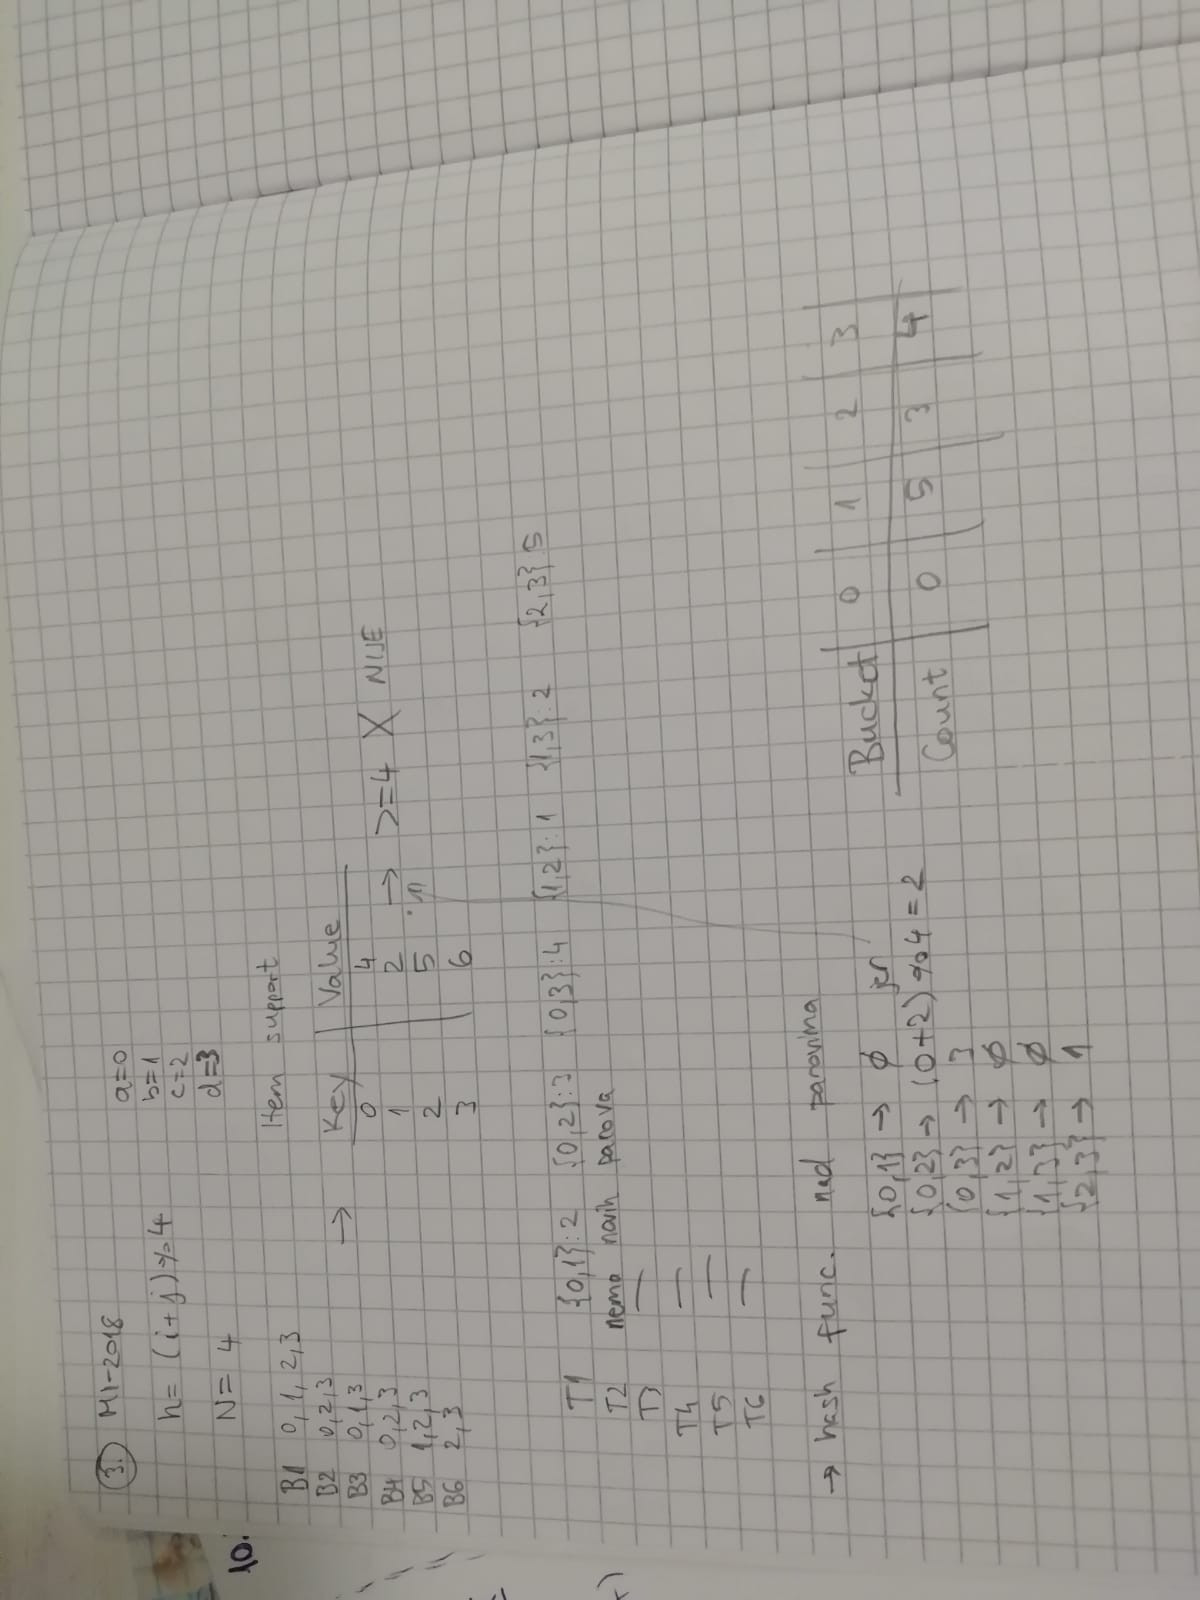 3. MI-2018
h= (i+j)%4
N= 4
a=0
b=1
c=2
d=3
B1 0,1,2,3
B2 0,2,3
B3 0,1,3
B4 0,2,3
B5 1,2,3
B6 2,3
→
Item support
Key Value
0 4
1 2 → >=4 X NIJE
2 5
3 6
T1 {0,1}:2 {0,2}:3 {0,3}:4 {1,2}:1 {1,3}:2 {2,3} 5
T2 nema novih parova
T3 —
T4 —
T5 —
T6 —
→ hash func. nad parovima
{0,1} → ∅ jer
{0,2} → (0+2)%4=2
{0,3} → 3
{1,2} → ∅
{1,3} → ∅
{2,3} → 1
Bucket 0 1 2 3
Count 0 5 3 4
10.